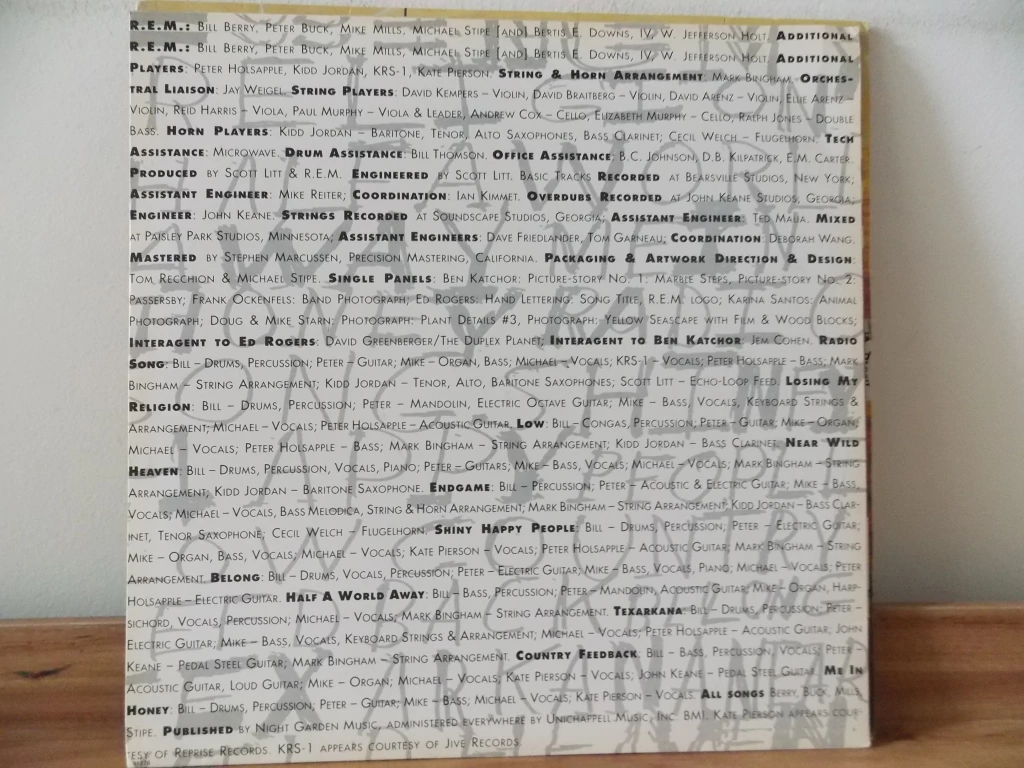 R.E.M.: Bill Berry, Peter Buck, Mike Mills, Michael Stipe [and] Bertis E. Downs, IV, W. Jefferson Holt. Additional
R.E.M.: Bill Berry, Peter Buck, Mike Mills, Michael Stipe [and] Bertis E. Downs, IV, W. Jefferson Holt. Additional
Players: Peter Holsapple, Kidd Jordan, KRS-1, Kate Pierson. String & Horn Arrangement: Mark Bingham. Orches-
tral Liaison: Jay Weigel. String Players: David Kempers – Violin, David Braitberg – Violin, David Arenz – Violin, Ellie Arenz –
Violin, Reid Harris – Viola, Paul Murphy – Viola & Leader, Andrew Cox – Cello, Elizabeth Murphy – Cello, Ralph Jones – Double
Bass. Horn Players: Kidd Jordan – Baritone, Tenor, Alto Saxophones, Bass Clarinet; Cecil Welch – Flugelhorn. Tech
Assistance: Microwave. Drum Assistance: Bill Thomson. Office Assistance: B.C. Johnson, D.B. Kilpatrick, E.M. Carter.
Produced by Scott Litt & R.E.M. Engineered by Scott Litt. Basic Tracks Recorded at Bearsville Studios, New York;
Assistant Engineer: Mike Reiter; Coordination: Ian Kimmet. Overdubs Recorded at John Keane Studios, Georgia;
Engineer: John Keane. Strings Recorded at Soundscape Studios, Georgia; Assistant Engineer: Ted Malia. Mixed
at Paisley Park Studios, Minnesota; Assistant Engineers: Dave Friedlander, Tom Garneau; Coordination: Deborah Wang.
Mastered by Stephen Marcussen, Precision Mastering, California. Packaging & Artwork Direction & Design:
Tom Recchion & Michael Stipe. Single Panels: Ben Katchor: Picture-story No. 1: Marble Steps, Picture-story No. 2:
Passersby; Frank Ockenfels: Band Photograph; Ed Rogers: Hand Lettering: Song Title, R.E.M. logo; Karina Santos: Animal
Photograph; Doug & Mike Starn: Photograph: Plant Details #3, Photograph: Yellow Seascape with Film & Wood Blocks;
Interagent to Ed Rogers: David Greenberger/The Duplex Planet; Interagent to Ben Katchor: Jem Cohen. Radio
Song: Bill – Drums, Percussion; Peter – Guitar; Mike – Organ, Bass; Michael – Vocals; KRS-1 – Vocals; Peter Holsapple – Bass; Mark
Bingham – String Arrangement; Kidd Jordan – Tenor, Alto, Baritone Saxophones; Scott Litt – Echo-Loop Feed. Losing My
Religion: Bill – Drums, Percussion; Peter – Mandolin, Electric Octave Guitar; Mike – Bass, Vocals, Keyboard Strings &
Arrangement; Michael – Vocals; Peter Holsapple – Acoustic Guitar. Low: Bill – Congas, Percussion; Peter – Guitar; Mike – Organ;
Michael – Vocals; Peter Holsapple – Bass; Mark Bingham – String Arrangement; Kidd Jordan – Bass Clarinet. Near Wild
Heaven: Bill – Drums, Percussion, Vocals, Piano; Peter – Guitars; Mike – Bass, Vocals; Michael – Vocals; Mark Bingham – String
Arrangement; Kidd Jordan – Baritone Saxophone. Endgame: Bill – Percussion; Peter – Acoustic & Electric Guitar; Mike – Bass,
Vocals; Michael – Vocals, Bass Melodica, String & Horn Arrangement; Mark Bingham – String Arrangement; Kidd Jordan – Bass Clar-
inet, Tenor Saxophone; Cecil Welch – Flugelhorn. Shiny Happy People: Bill – Drums, Percussion; Peter – Electric Guitar;
Mike – Organ, Bass, Vocals; Michael – Vocals; Kate Pierson – Vocals; Peter Holsapple – Acoustic Guitar; Mark Bingham – String
Arrangement. Belong: Bill – Drums, Vocals, Percussion; Peter – Electric Guitar; Mike – Bass, Vocals, Piano; Michael – Vocals; Peter
Holsapple – Electric Guitar. Half A World Away: Bill – Bass, Percussion; Peter – Mandolin, Acoustic Guitar; Mike – Organ, Harp-
sichord, Vocals, Percussion; Michael – Vocals; Mark Bingham – String Arrangement. Texarkana: Bill – Drums, Percussion; Peter –
Electric Guitar; Mike – Bass, Vocals, Keyboard Strings & Arrangement; Michael – Vocals; Peter Holsapple – Acoustic Guitar, John
Keane – Pedal Steel Guitar; Mark Bingham – String Arrangement. Country Feedback: Bill – Bass, Percussion, Vocals; Peter –
Acoustic Guitar, Loud Guitar; Mike – Organ; Michael – Vocals, Kate Pierson – Vocals; John Keane – Pedal Steel Guitar. Me In
Honey: Bill – Drums, Percussion; Peter – Guitar; Mike – Bass; Michael – Vocals; Kate Pierson – Vocals. All songs Berry, Buck, Mills,
Stipe. Published by Night Garden Music, administered everywhere by Unichappell Music, Inc. BMI. Kate Pierson appears cour-
tesy of Reprise Records. KRS-1 appears courtesy of Jive Records.